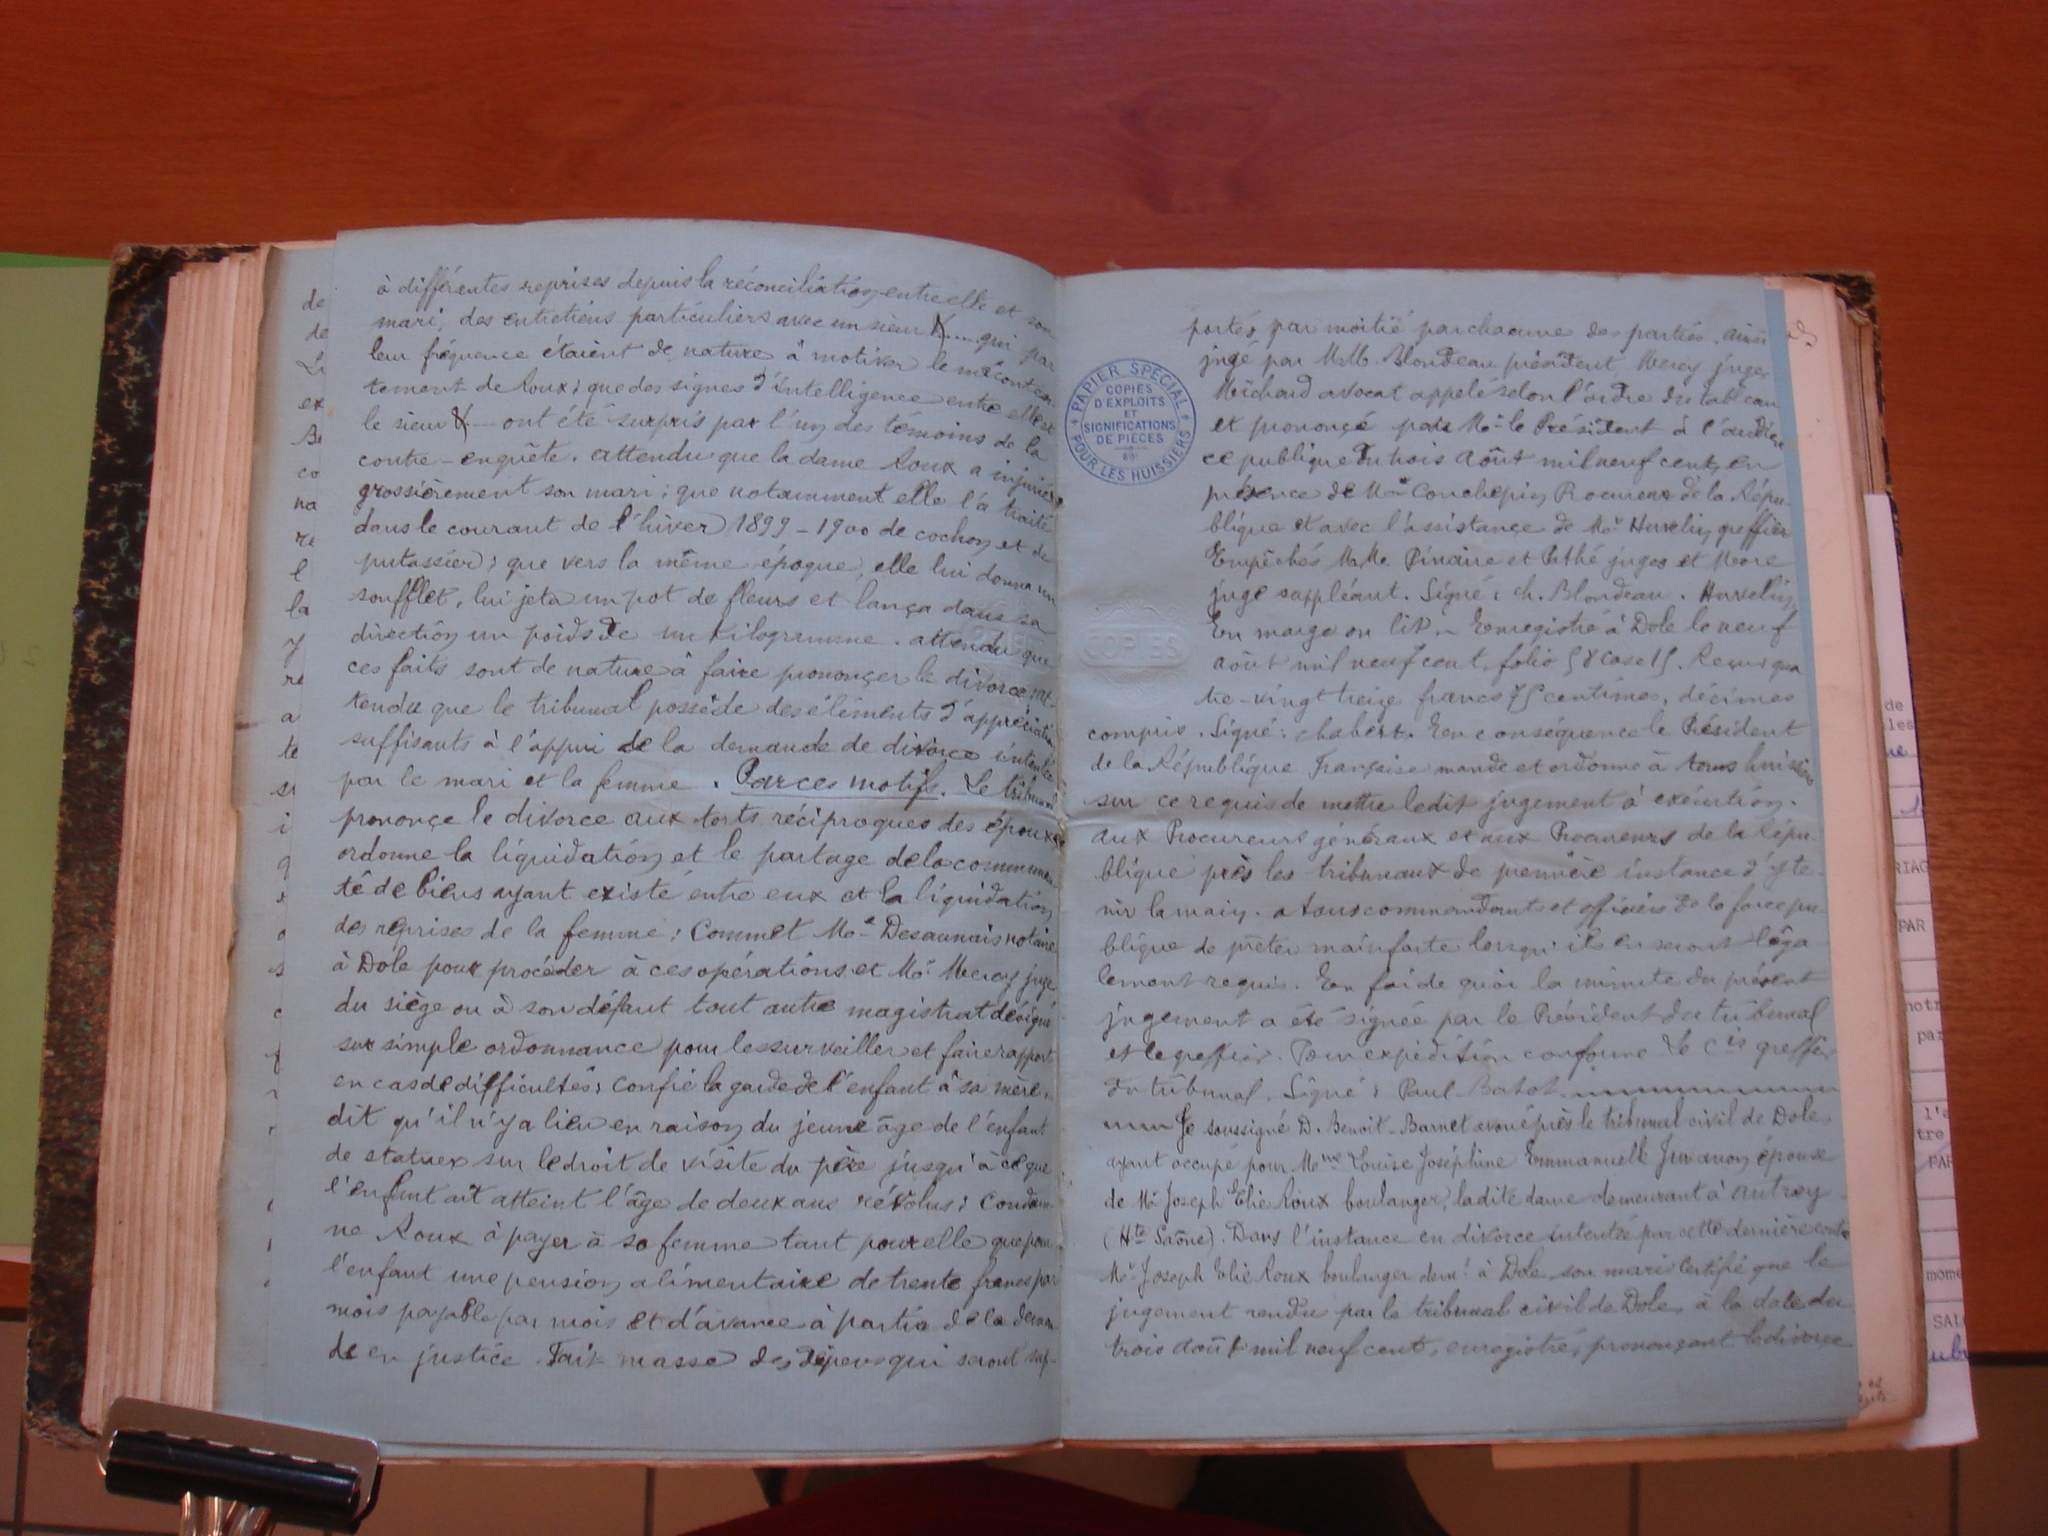 à différentes reprises depuis la réconciliation entre elle et son
mari, des entretiens particuliers avec un sieur X.... qui par
leur fréquence étaient de nature à motiver le méconten-
tement de Roux; que des signes d'intelligence entre elle et
le sieur X — ont été surpris par l'un des témoins de la
contre-enquête. attendu que la dame Roux a injurié
grossièrement son mari; que notamment elle l'a traité
dans le courant de l'hiver 1899-1900 de cochon et de
putassier; que vers la même époque, elle lui donna un
soufflet, lui jeta un pot de fleurs et lança dans sa
direction un poids de un kilogramme. attendu que
ces faits sont de nature à faire prononcer le divorce at-
tendu que le tribunal possède des éléments d'appréciation
suffisants à l'appui de la demande de divorce intentée
par le mari et la femme. Par ces motifs. Le tribunal
prononce le divorce aux torts réciproques des époux
ordonne la liquidation et le partage de la communau
té de biens ayant existé entre eux et la liquidation
des reprises de la femme; Commet Me Desaunais notaire
à Dole pour procéder à ces opérations et Mr Mercey juge
du siège ou à son défaut tout autre magistrat désigné
sur simple ordonnance pour les surveiller et faire rapport
en cas de difficultés; Confie la garde de l'enfant à sa mère,
dit qu'il n'y a lieu en raison du jeune âge de l'enfant
de statuer sur le droit de visite du père jusqu'à ce que
l'enfant ait atteint l'âge de deux ans révolus; Condam-
ne Roux à payer à sa femme tant pour elle que pour
l'enfant une pension alimentaire de trente francs par
mois payable par mois et d'avance à partir de la deman
de en justice. Fait masse des dépens qui seront sup-
portés par moitié par chacune des parties. ainsi
jugé par M.M. Blondeau président, Mercey juge
Meichard avocat appelé selon l'ordre du tableau
et prononcé par Mr le Président à l'audien
ce publique du trois Août mil neuf cent, en
présence de Mr Conchepin Procureur de la Répu-
blique et avec l'assistance de Mr Huvelin greffier
Empêchés M.M. Pinaire et Pathé juges et More
juge suppléant. Signé: ch. Blondeau. Huvelin
En marge on lit. – Enregistré à Dole le neuf
août mil neuf cent, folio 58 Case 15. Reçu qua
tre-vingt treize francs 75 centimes, décimes
compris. Signé: chabert. En conséquence le Président
de la République Française mande et ordonne à tous huissiers
sur ce requis de mettre ledit jugement à exécution.
aux Procureurs généraux et aux Procureurs de la Répu-
blique près les tribunaux de première instance d'y te-
nir la main. à tous commandants et officiers de la force pu-
blique de prêter mainforte lorsqu'ils en seront léga-
lement requis. En foi de quoi la minute du présent
jugement a été signée par le Président du tribunal
et le greffier. Pour expédition conforme Le Cis greffier
du tribunal. Signé: Paul
Je soussigné D. Benoit-Barnet avoué près le tribunal civil de Dole
ayant occupé pour Mme Louise Joséphine Emmanuelle épouse
de Mr Joseph Elie Roux boulanger, ladite dame demeurant à Autrey
(Hte Saône). Dans l'instance en divorce intentée par cette dernière contre
Mr Joseph Elie Roux boulanger demt à Dole son mari certifie que le
jugement rendu par le tribunal civil de Dole, à la date du
trois août mil neuf cent, enregistré, prononçant le divorce
PAPIER SPÉCIAL
COPIES
D'EXPLOITS
ET
SIGNIFICATIONS
DE PIÈCES
POUR LES HUISSIERS
COPIES